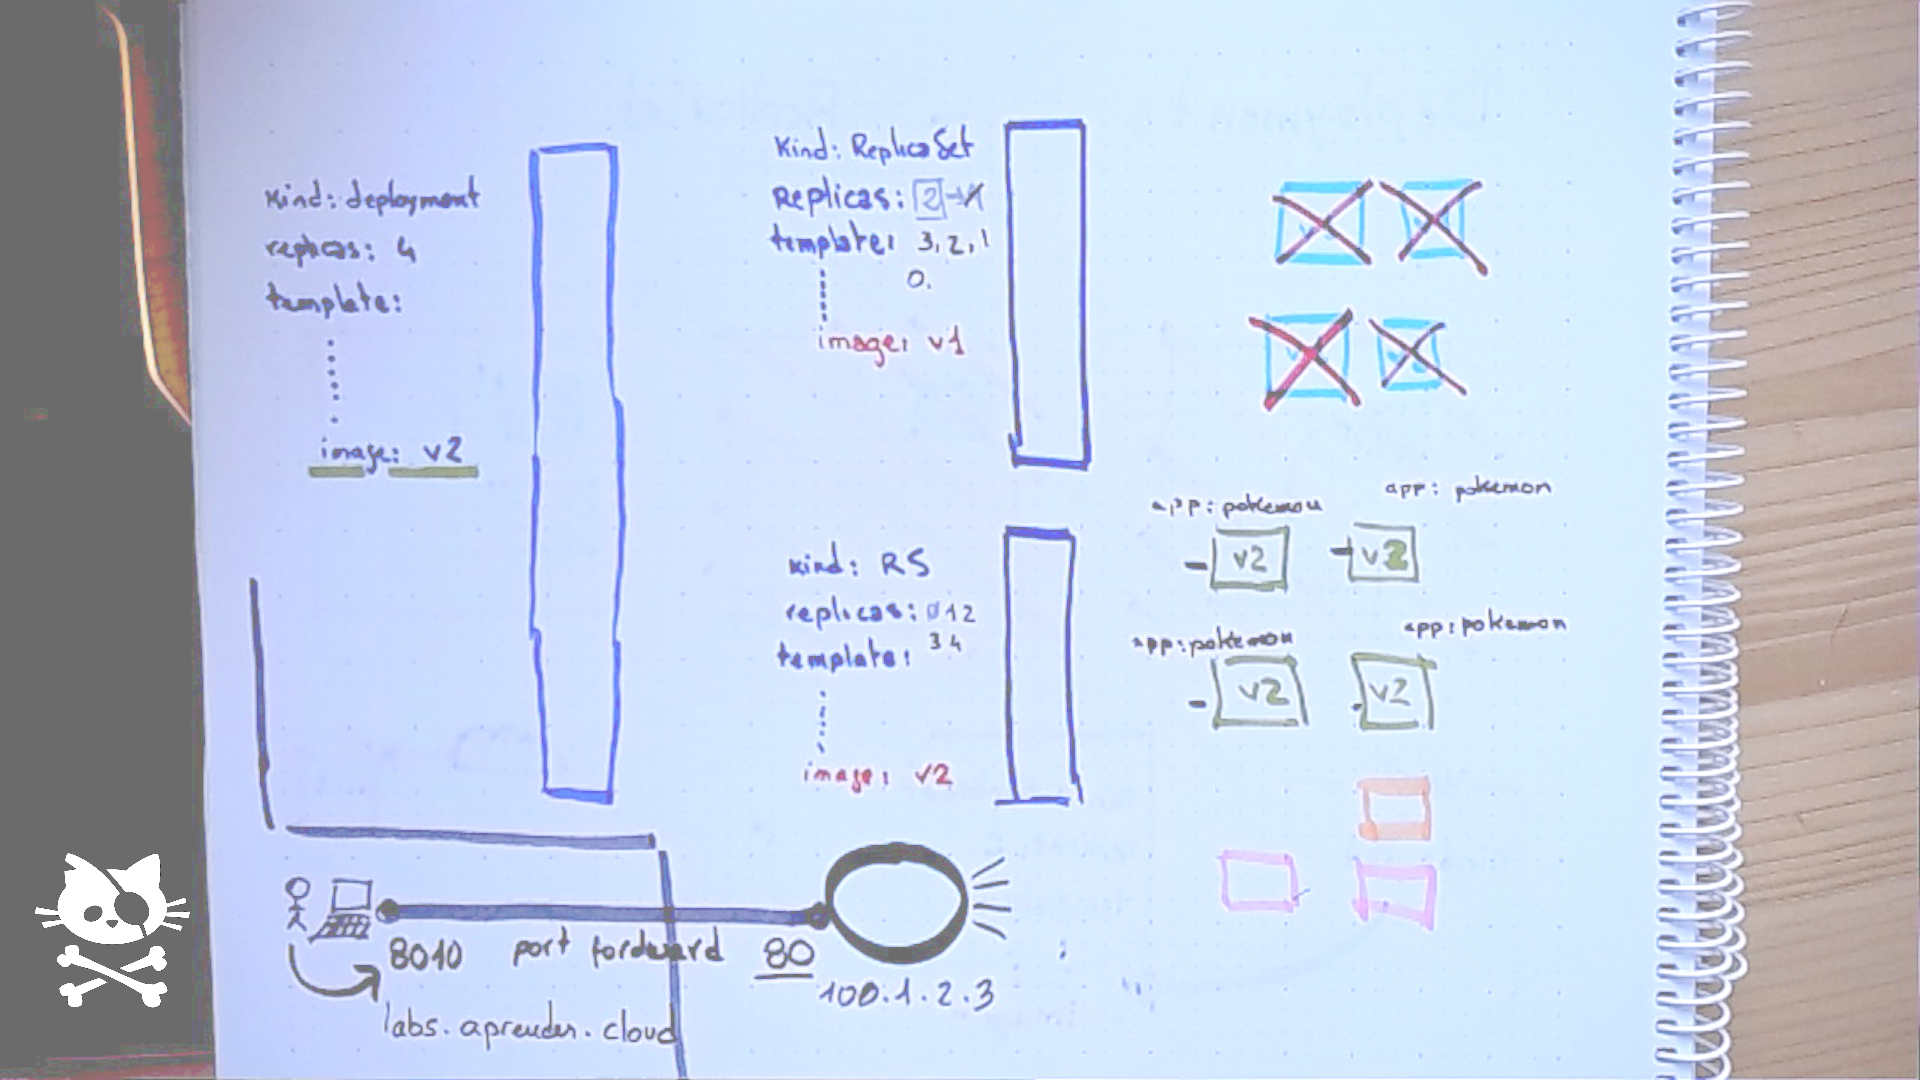 Kind: deployment
replicas: 4
template:
image: v2
Kind: ReplicaSet
Replicas: 2
template: 3, 2, 1
0.
image: v1
kind: RS
replicas: 0 1 2
template: 3 4
image: v2
app: pokemon
app: pokemon
v2
v2
app: pokemon
app: pokemon
v2
v2
8010 port fordward 80
100.1.2.3
labs.aprender.cloud